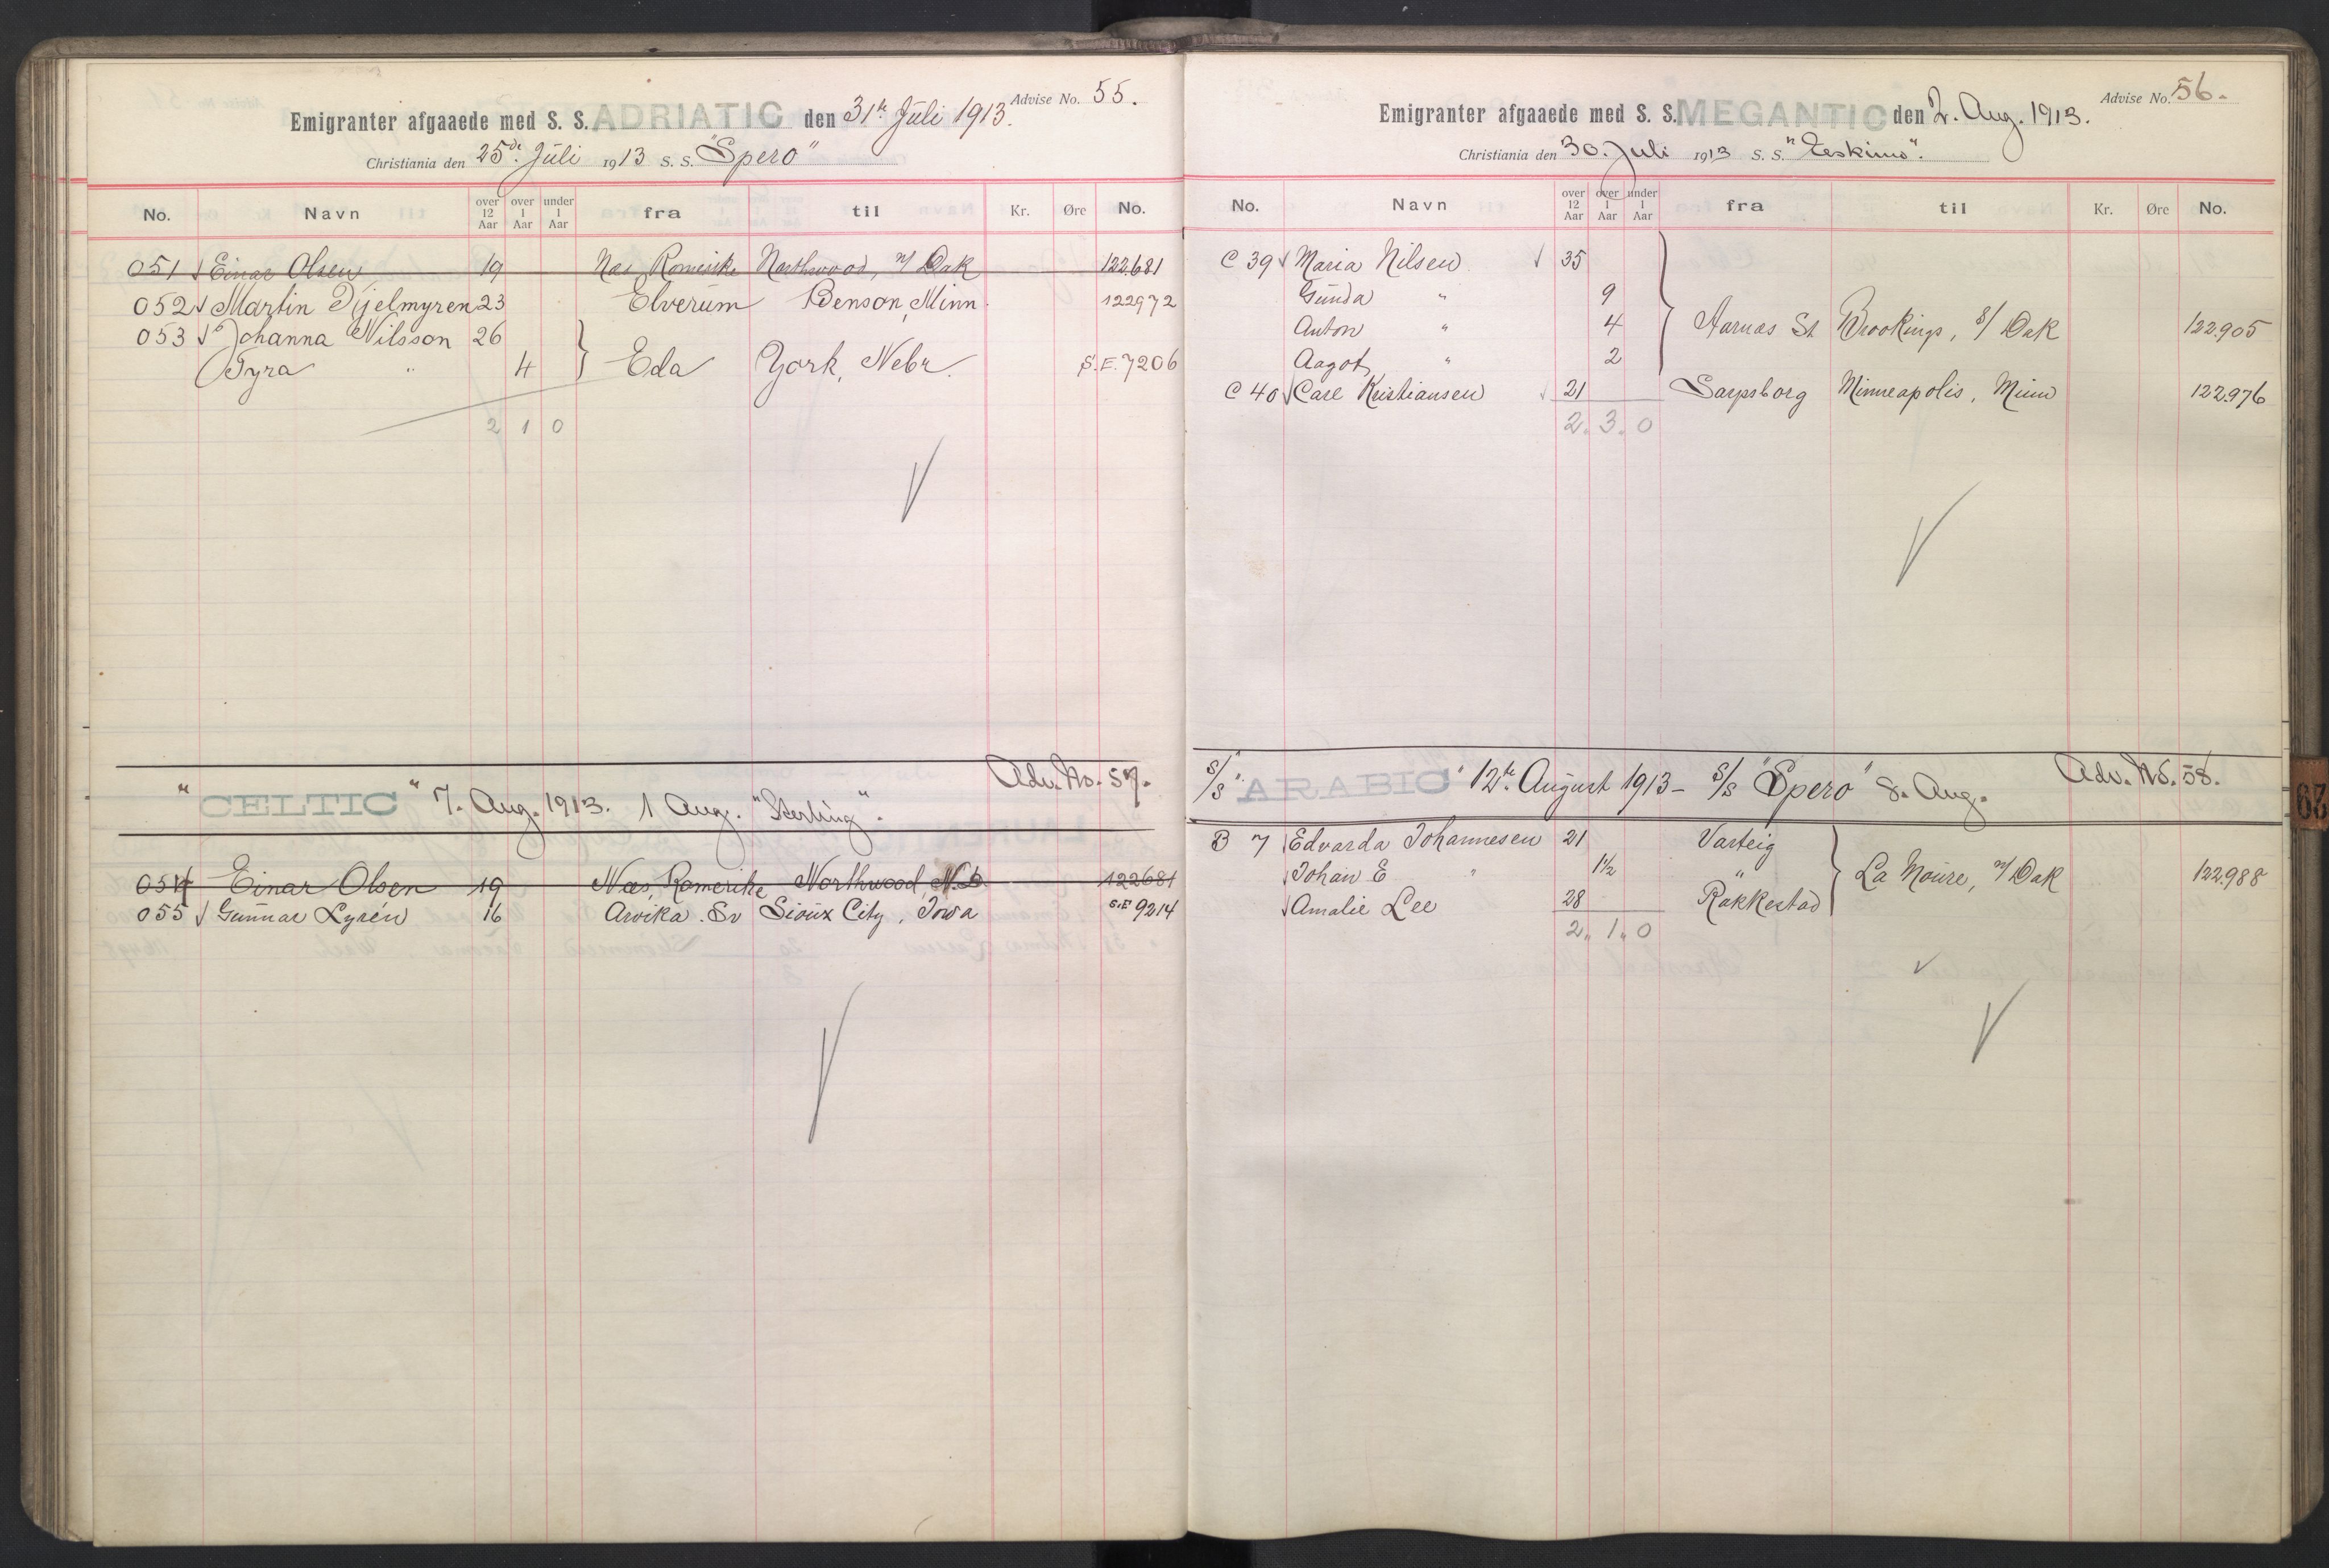 Advise No. 55.
Emigranter afgaaede med S. S. ADRIATIC den 31te Juli 1913.
Christiania den 25de Juli 1913 S. S. "Spero"
No. Navn over 12 Aar over 1 Aar under 1 Aar fra til Kr. Øre No.
051 Einar Olsen 19 Næs, Romerike Northwood, N/ Dak 122.681
052 Martin Dijelmyren 23 Elverum Benson, Minn. 122972
053 Johanna Nilsson 26
Tyra " 4 Eda York, Nebr. S.E. 7206
2 1 0
Adv. No. 57.
" CELTIC " 7. Aug. 1913. 1 Aug. "Sterling".
054 Einar Olsen 19 Næs, Romerike Northwood, N.D. 122681
055 Gunnar Lyrén 16 Arvika. Sv Sioux City, Iowa S.E 9214
Advise No. 56.
Emigranter afgaaede med S. S. MEGANTIC den 2. Aug. 1913.
Christiania den 30. Juli 1913 S. S. "Eskimo".
No. Navn over 12 Aar over 1 Aar under 1 Aar fra til Kr. Øre No.
C 39 Maria Nilsen 35
Gunda " 9
Anton " 4 Aarnæs St Brookings, S/ Dak 122.905
Aagot " 2
C 40 Carl Kristiansen 21 Sarpsborg Minneapolis, Minn 122.976
2. 3. 0
S/S " ARABIC " 12te August 1913 - S/S "Spero" 8. Aug. Adv. No. 58.
B 7 Edvarda Johannesen 21 Varteig
Johan E " 1½ " La Moure, N/ Dak 122.988
Amalie Lee 28 Rakkestad
2. 1. 0
63